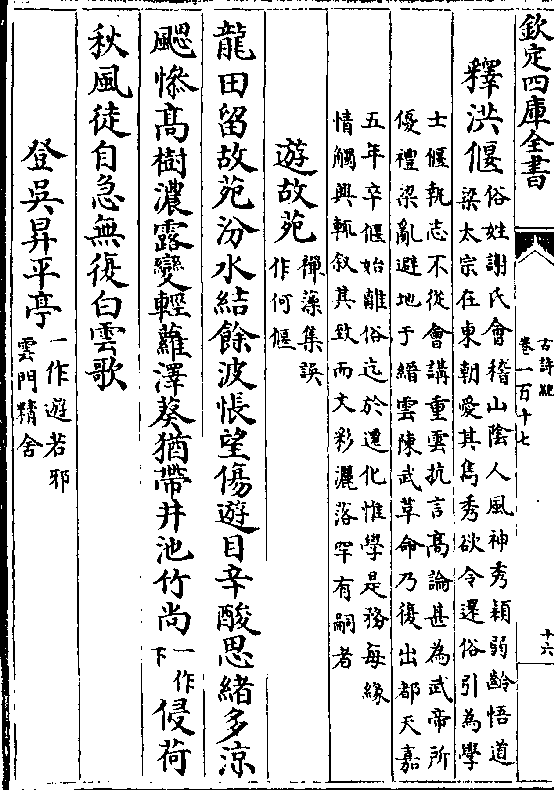 欽定四庫全書
古詩紀
卷一百十七
十六
釋洪偃
俗姓謝氏會稽山陰人風神秀穎弱齡悟道
梁太宗在東朝愛其雋秀欲令還俗引為學
士偃執志不從會講重雲抗言高論甚為武帝所
優禮梁亂避地于縉雲陳武革命乃復出都天嘉
五年卒偃始離俗迄於遷化惟學是務每緣
情觸興輒叙其致而文彩灑落罕有嗣者
遊故苑
禪藻集誤
作何偃
龍田留故苑汾水結餘波悵望傷遊目辛酸思緒多涼
飔慘髙樹濃露變輕蘿澤葵猶帶井池竹尚
一作
下
侵荷
秋風徒自急無復白雲歌
登吳昇平亭
一作遊若邪
雲門精舍